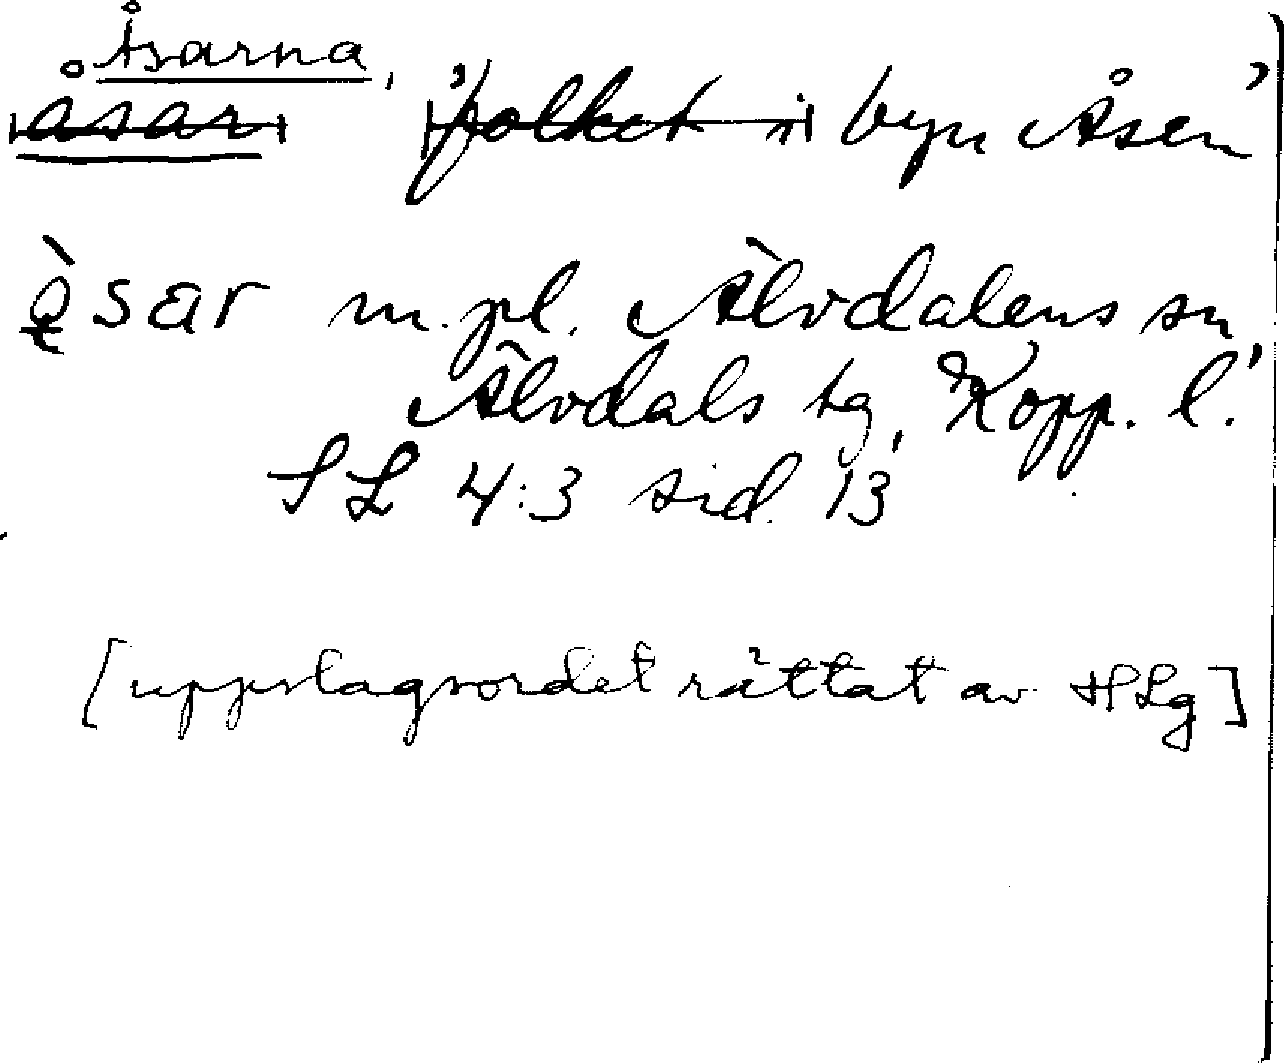 Åsarna,
åsar 'folket i byn Åsen'
ǫ̀sar m. pl. Älvdalens sn,
Älvdals tg, Kopp. l.
SL 4:3 sid. 13
[uppslagsordet rättat av HLg]